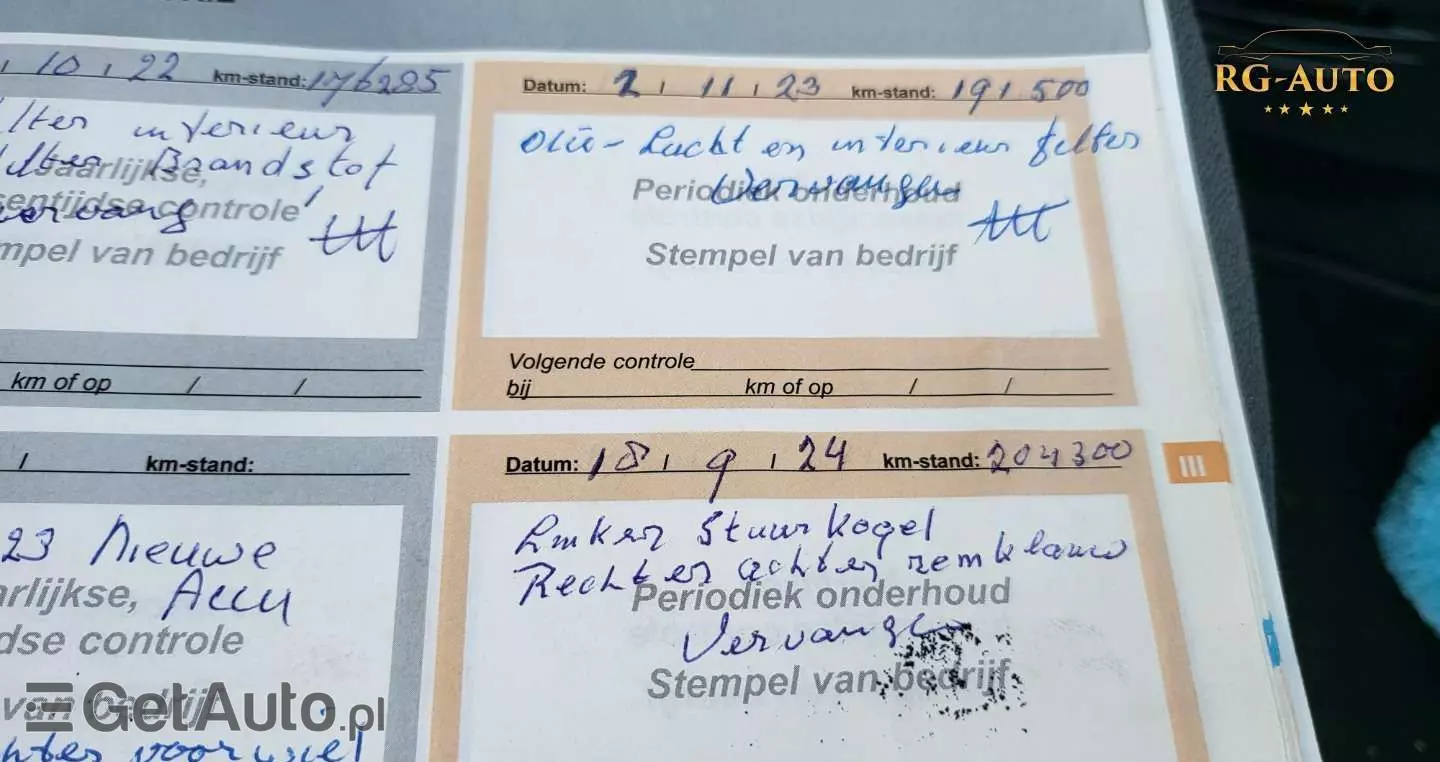 10 , 22 km-stand: 176285
lter interieur
Brandstof
Jaarlijkse,
controle
vervang
mpel van bedrijf
km of op / /
Datum: 2 , 11 , 23 km-stand: 191 500
Olie - Lucht en interieur filter
Vervangen
Periodiek onderhoud
Stempel van bedrijf
Volgende controle
bij km of op / /
/ km-stand:
23 Nieuwe
Accu
arlijkse,
dse controle
van bedrijf
voorwiel
Datum: 18 , 9 , 24 km-stand: 204300
Linker Stuurkogel
Rechter achter remklauw
Periodiek onderhoud
Vervangen
Stempel van bedrijf
III
RG-AUTO
GetAuto.pl